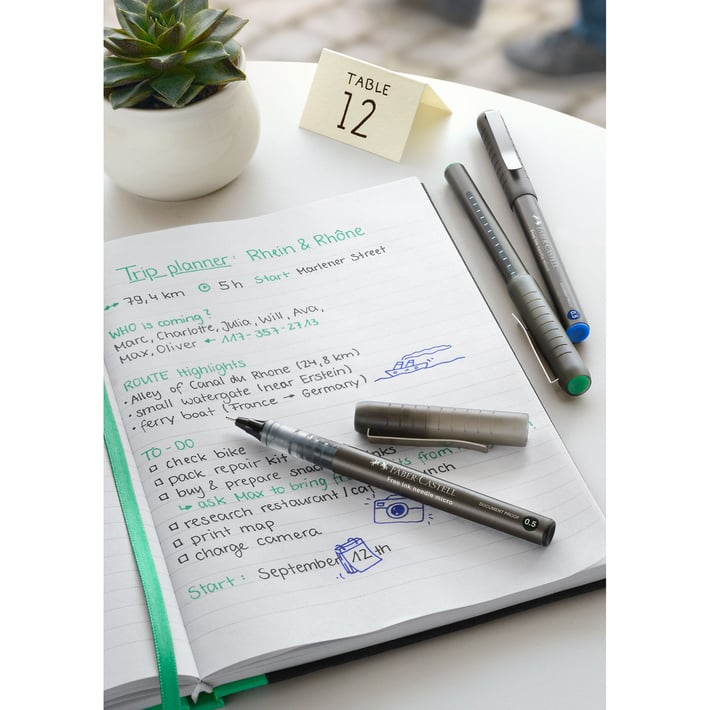 TABLE
12
Trip planner: Rhein & Rhône
79,4 km 5h Start Marlener Street
WHO is coming?
Marc, Charlotte, Julia, Will, Ava,
Max, Oliver ← 117-357-2713
ROUTE Highlights
· Alley of Canal du Rhone (24,8 km)
· small watergate (near Erstein)
· ferry boat (France → Germany)
TO-DO
□ check bike
□ pack repair kit
□ buy & prepare
↳ ask Max to bring from
□ research restaurant /
□ print map
□ charge camera
Start: September 12th
FABER-CASTELL
Free ink needle micro
DOCUMENT PROOF
0.5
FABER-CASTELL